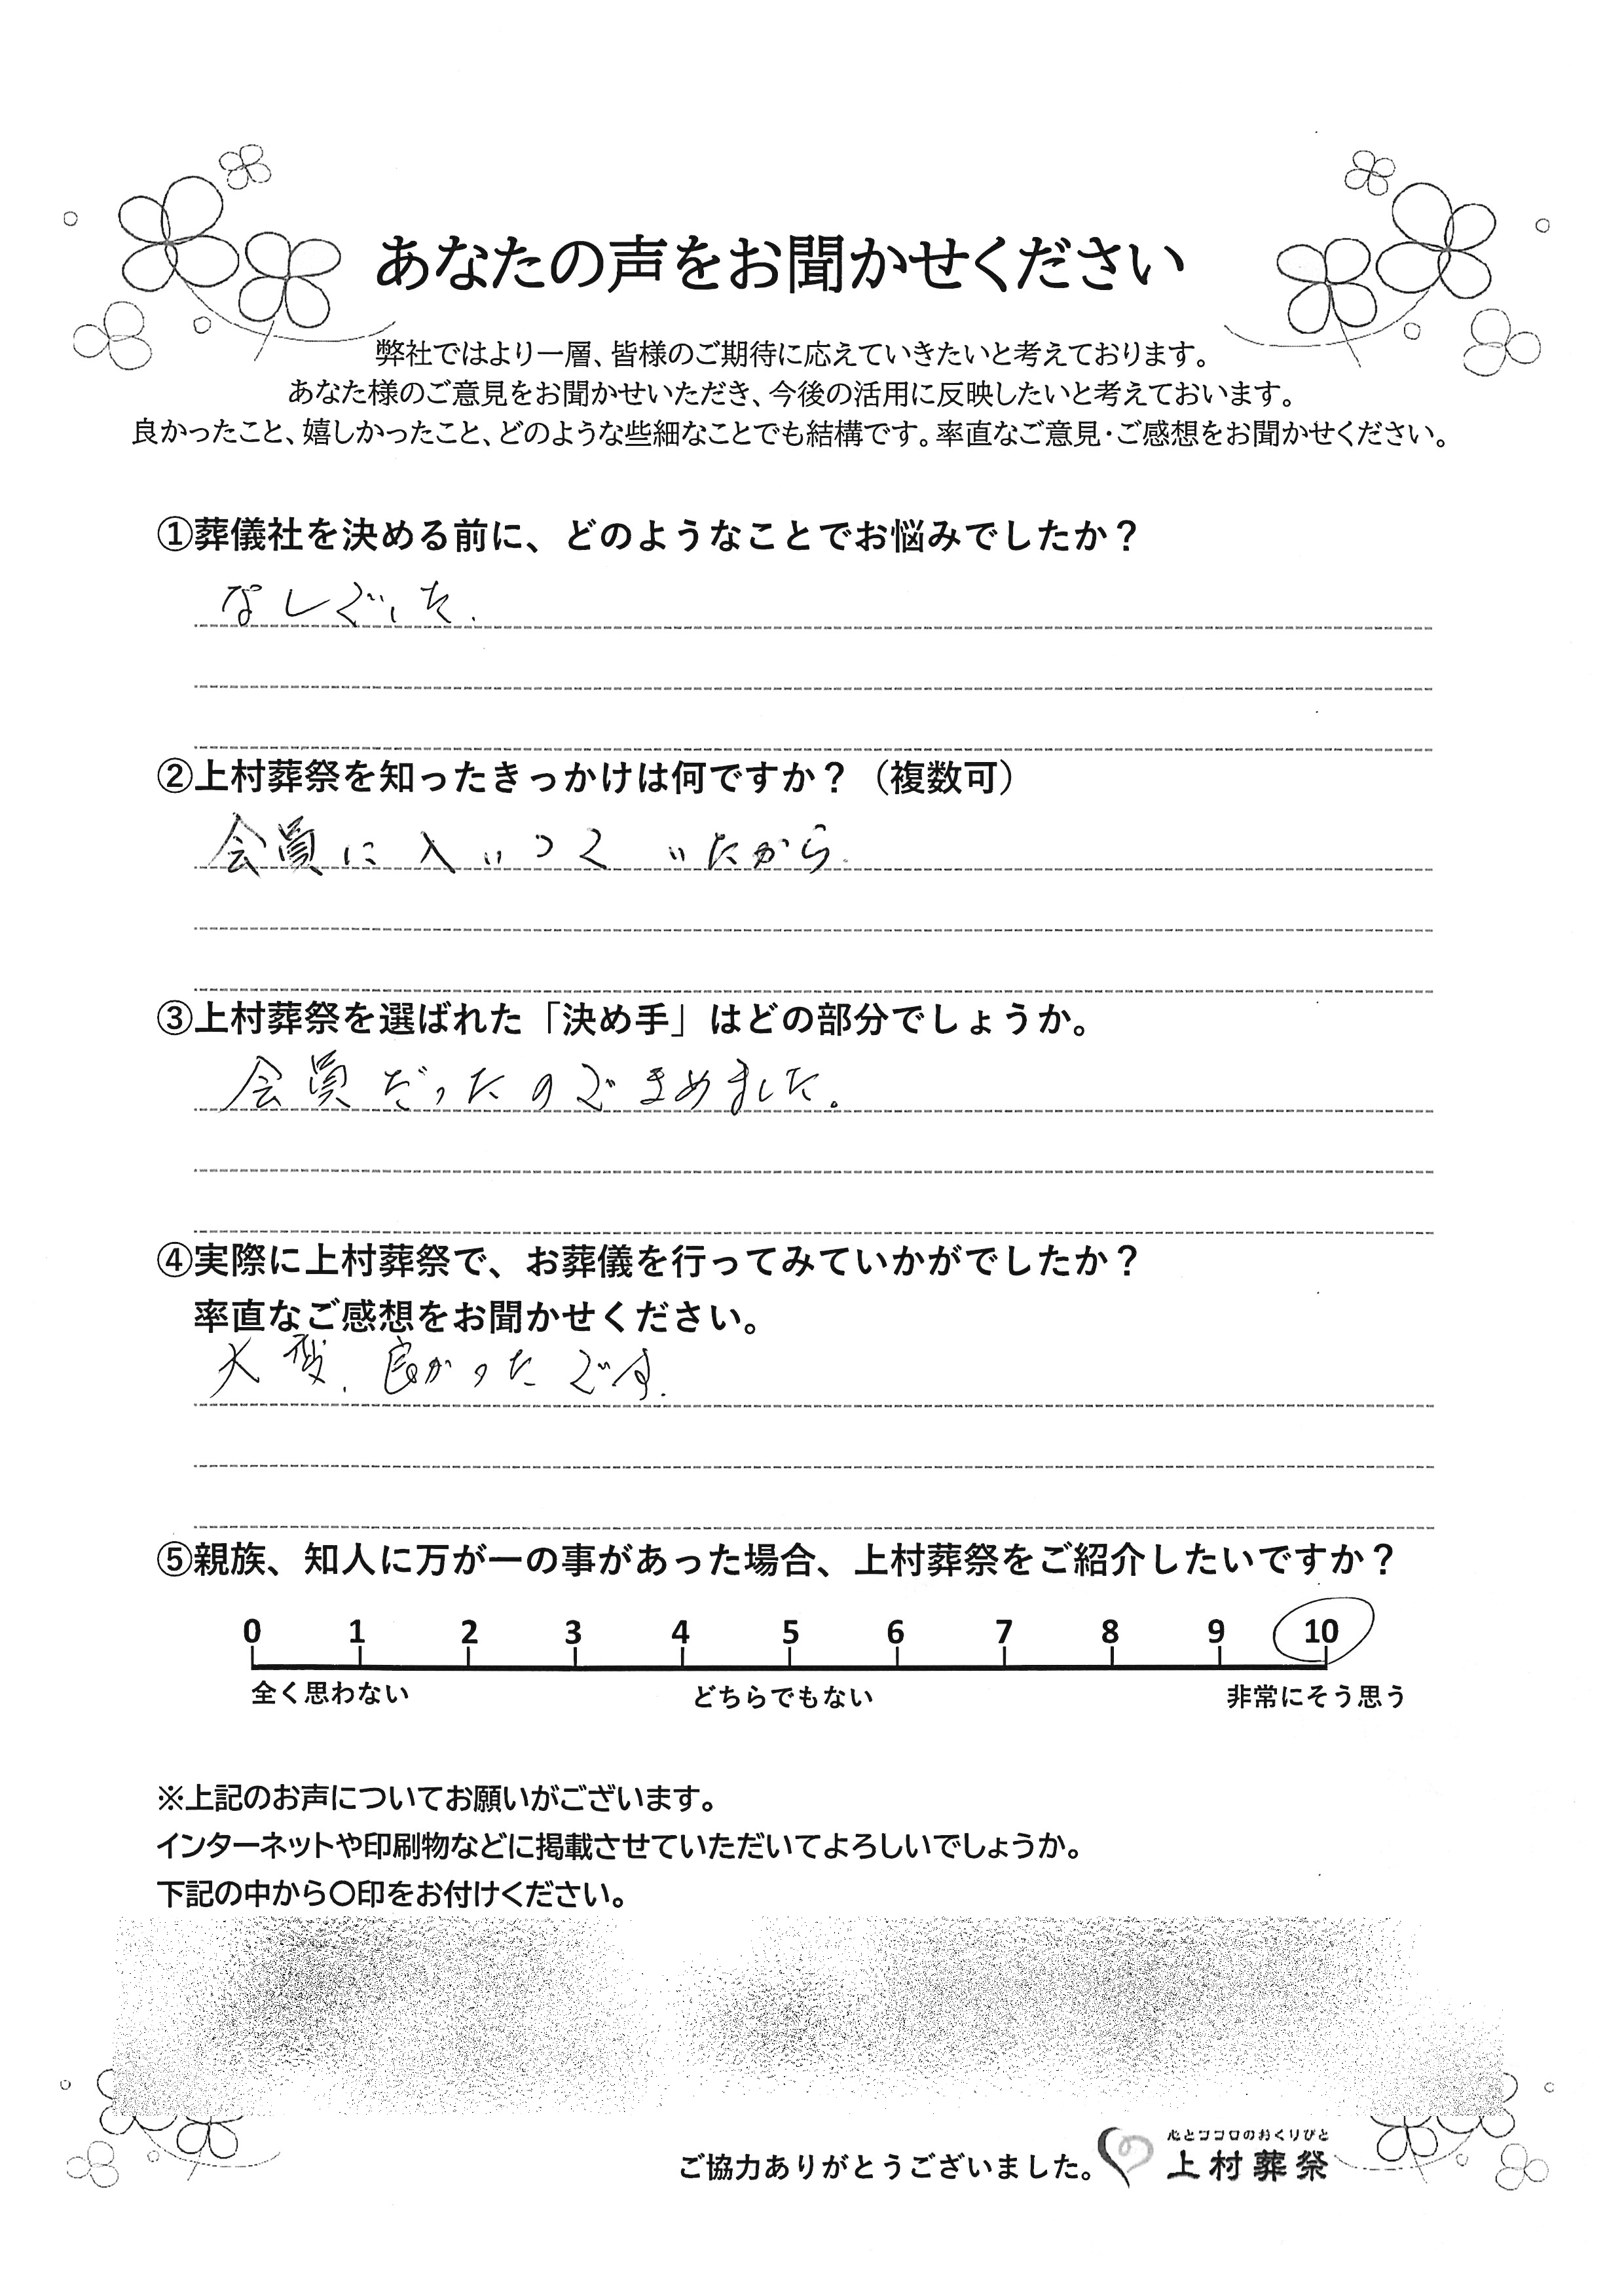 あなたの声をお聞かせください
弊社ではより一層、皆様のご期待に応えていきたいと考えております。
あなた様のご意見をお聞かせいただき、今後の活用に反映したいと考えておいます。
良かったこと、嬉しかったこと、どのような些細なことでも結構です。率直なご意見・ご感想をお聞かせください。
①葬儀社を決める前に、どのようなことでお悩みでしたか？
なしでした.
②上村葬祭を知ったきっかけは何ですか？（複数可）
会員に入いつていたから.
③上村葬祭を選ばれた「決め手」はどの部分でしょうか。
会員だったのできめました。
④実際に上村葬祭で、お葬儀を行ってみていかがでしたか？
率直なご感想をお聞かせください。
大変.良かったです.
⑤親族、知人に万が一の事があった場合、上村葬祭をご紹介したいですか？
0 1 2 3 4 5 6 7 8 9 10
全く思わない どちらでもない 非常にそう思う
※上記のお声についてお願いがございます。
インターネットや印刷物などに掲載させていただいてよろしいでしょうか。
下記の中から〇印をお付けください。
心とココロのおくりびと
ご協力ありがとうございました。上村葬祭